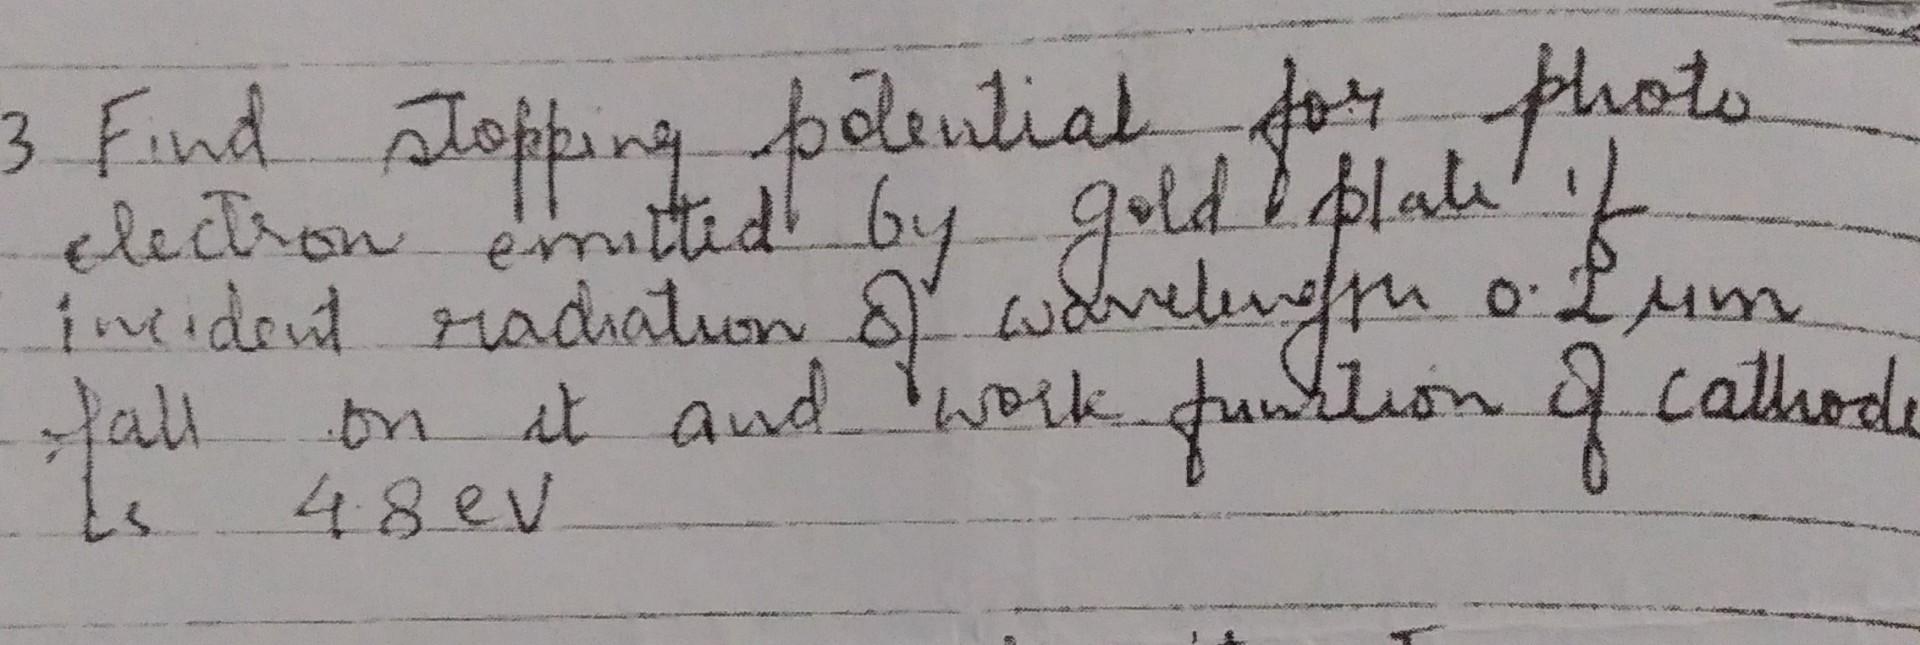 3 Find stopping potential for photo
electron emitted by gold plate if
incident radiation of wavelength 0.2 μm
fall on it and work function of cathode
is 4.8 eV